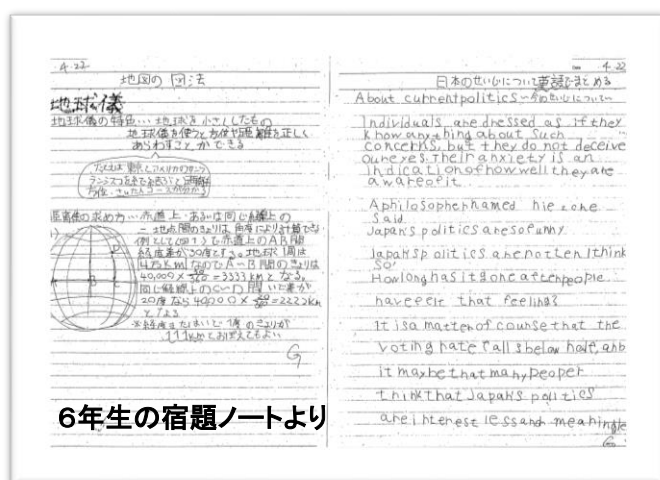 4.22
地図の図法
地球儀
地球儀の特色…地球を小さくしたもの
地球儀を使うと方位や距離を正しく
あらわすことができる
距離の求め方…赤道上・あるいは同じ経線上の
二地点間のきょりは、角度により計算できる
例として(図1)で赤道上のAB間
経度差が30度とする。地球1周は
4万kmなのでA-B間のきょりは
40,000×30/360=3333kmとなる。
同じ経線上のC-D間 いど差が
20度なら40000×20/360=2222km
となる
111kmとおぼえてもよい
G
6年生の宿題ノートより
4.22
日本のせい心について英語でまとめる
About currentpolitics〜今のせい心について〜
Individuals are dressed as if they
know anything about such
concerns, but they do not deceive
our eyes. Their anxiety is an
indication of how well they are
aware of it.
A philosopher named
said.
Japan's politics are so funny.
Japan's politics are rotten I think
so!
How long has it gone after people
have eelt that feeling?
It is a matter of counse that the
voting rate falls below half, anb
it maybe that many peoper
think that Japan's politics
are interest less and meaningle
G